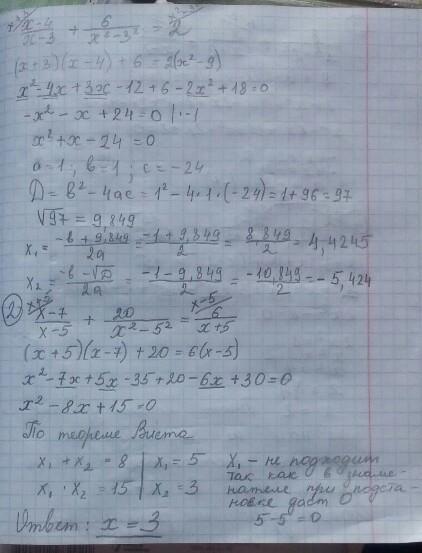 x-4/x-3 + 6/x²-3² = 2
(x+3)(x-4)+6 = 2(x²-9)
x²-4x+3x-12+6-2x²+18=0
-x²-x+24=0 |·-1
x²+x-24=0
a=1; b=1; c=-24
D=b²-4ac=1²-4·1·(-24)=1+96=97
√97 = 9,849
x₁ = -b+9,849/2a = -1+9,849/2 = 8,849/2 = 4,4245
x₂ = -b-√D/2a = -1-9,849/2 = -10,849/2 = -5,424
② x+5 x-7/x-5 + 20/x²-5² = x-5 6/x+5
(x+5)(x-7)+20=6(x-5)
x²-7x+5x-35+20-6x+30=0
x²-8x+15=0
По теореме Виета
x₁+x₂=8 | x₁=5 x₁ - не подходит
так как в знаме-
x₁·x₂=15 | x₂=3 нателе при подста-
новке даст 0
Ответ: x=3 5-5=0